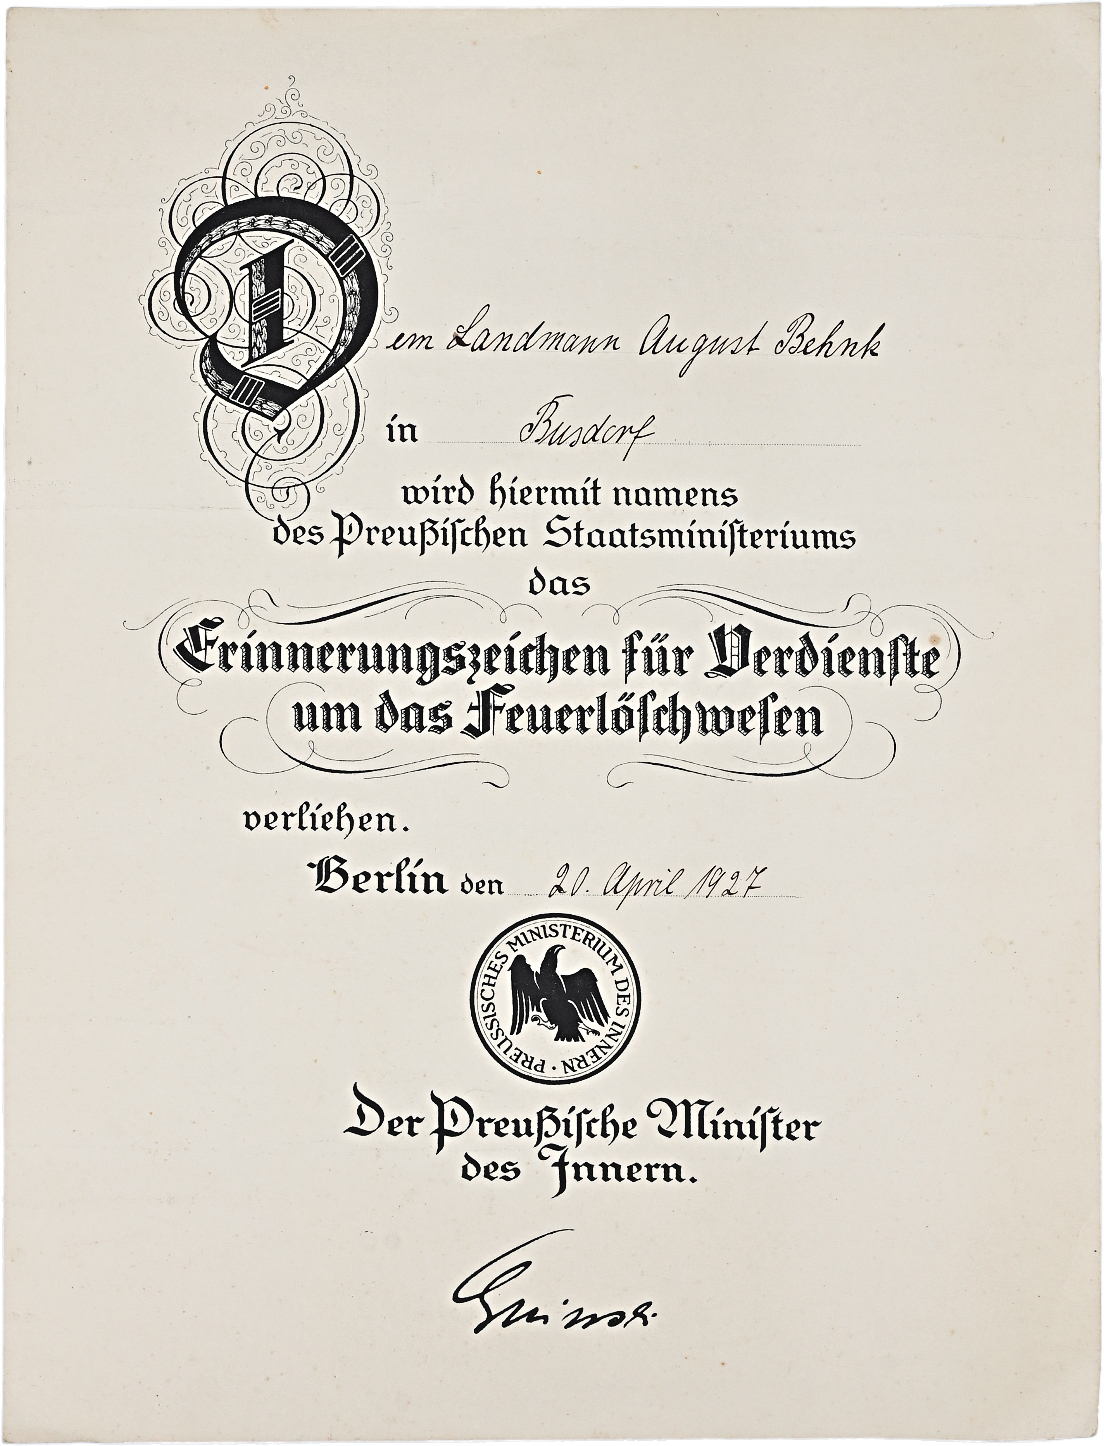 Dem Landmann August Behnk
in Busdorf
wird hiermit namens
des Preußiſchen Staatsminiſteriums
das
Erinnerungszeichen für Verdienſte
um das Feuerlöſchweſen
verliehen.
Berlin den 20. April 1927
PREUSSISCHES MINISTERIUM DES INNERN ·
Der Preußiſche Miniſter
des Innern.